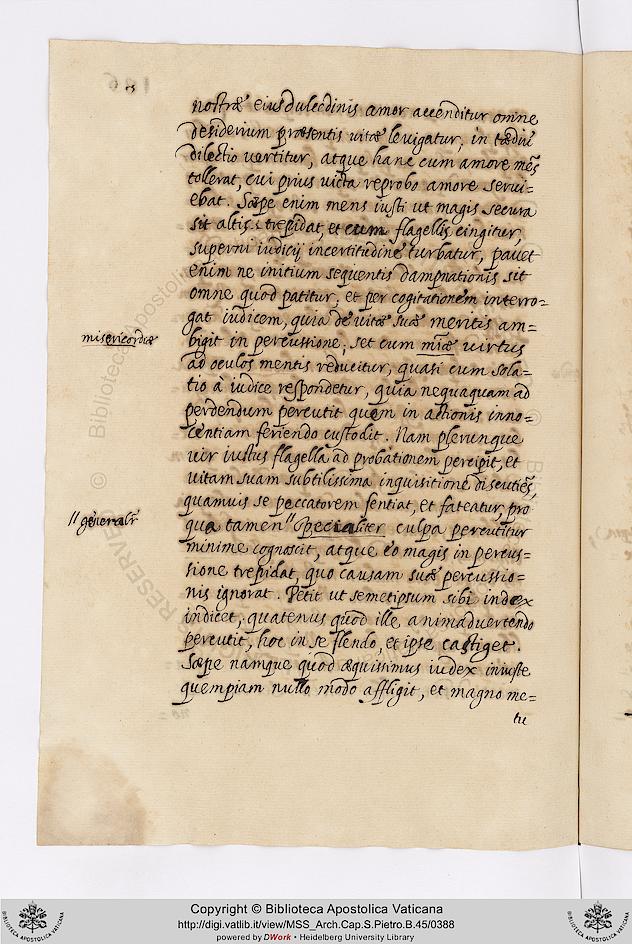 nostræ eiusdulcdinis amor accenditur omne
desiderium præsentis vitæ levigatur, in tædiū
dilectio vertitur, atque hanc cum amore mēs
tollerat, cui prius victa reprobo amore servi=
ebat. Sæpe enim mens iusti ut magis secura
sit altis: trepidat, et cum flagellis cingitur,
superni iudicij incertitudine turbatur, pavet
enim ne initium sequentis dampnationis sit
omne quod patitur, et per cogitationem interro=
gat iudicem, quia de vitæ suæ meritis am=
misericordiæ
bigit in percussione; set cum mīæ virtus
ad oculos mentis reducitur, quasi cum sola=
tio à iudice respondetur, quia nequaquam ad
perdendum percutit quem in actionis inno=
centiam feriendo custodit. Nam plerunque
vir iustus flagella ad probationem percipit, et
vitam suam subtilissima inquisitione discutiēs,
quamuis se peccatorem sentiat, et fateatur, pro
// generalr̄
qua tamen // specialiter culpa percutitur
minime cognoscit, atque eo magis in percus=
sione trepidat, quo causam suæ percussio=
nis ignorat. Petit ut semetipsum sibi index
indicet, quatenus quod ille animadvertendo
percutit, hoc in se flendo, et ipse castiget.
Sæpe namque quod æquissimus iudex iniuste
quempiam nullo modo affligit, et magno me=
tu
© Biblioteca Apostolica
RESERVED
Copyright © Biblioteca Apostolica Vaticana
http://digi.vatlib.it/view/MSS_Arch.Cap.S.Pietro.B.45/0388
powered by DWork • Heidelberg University Library